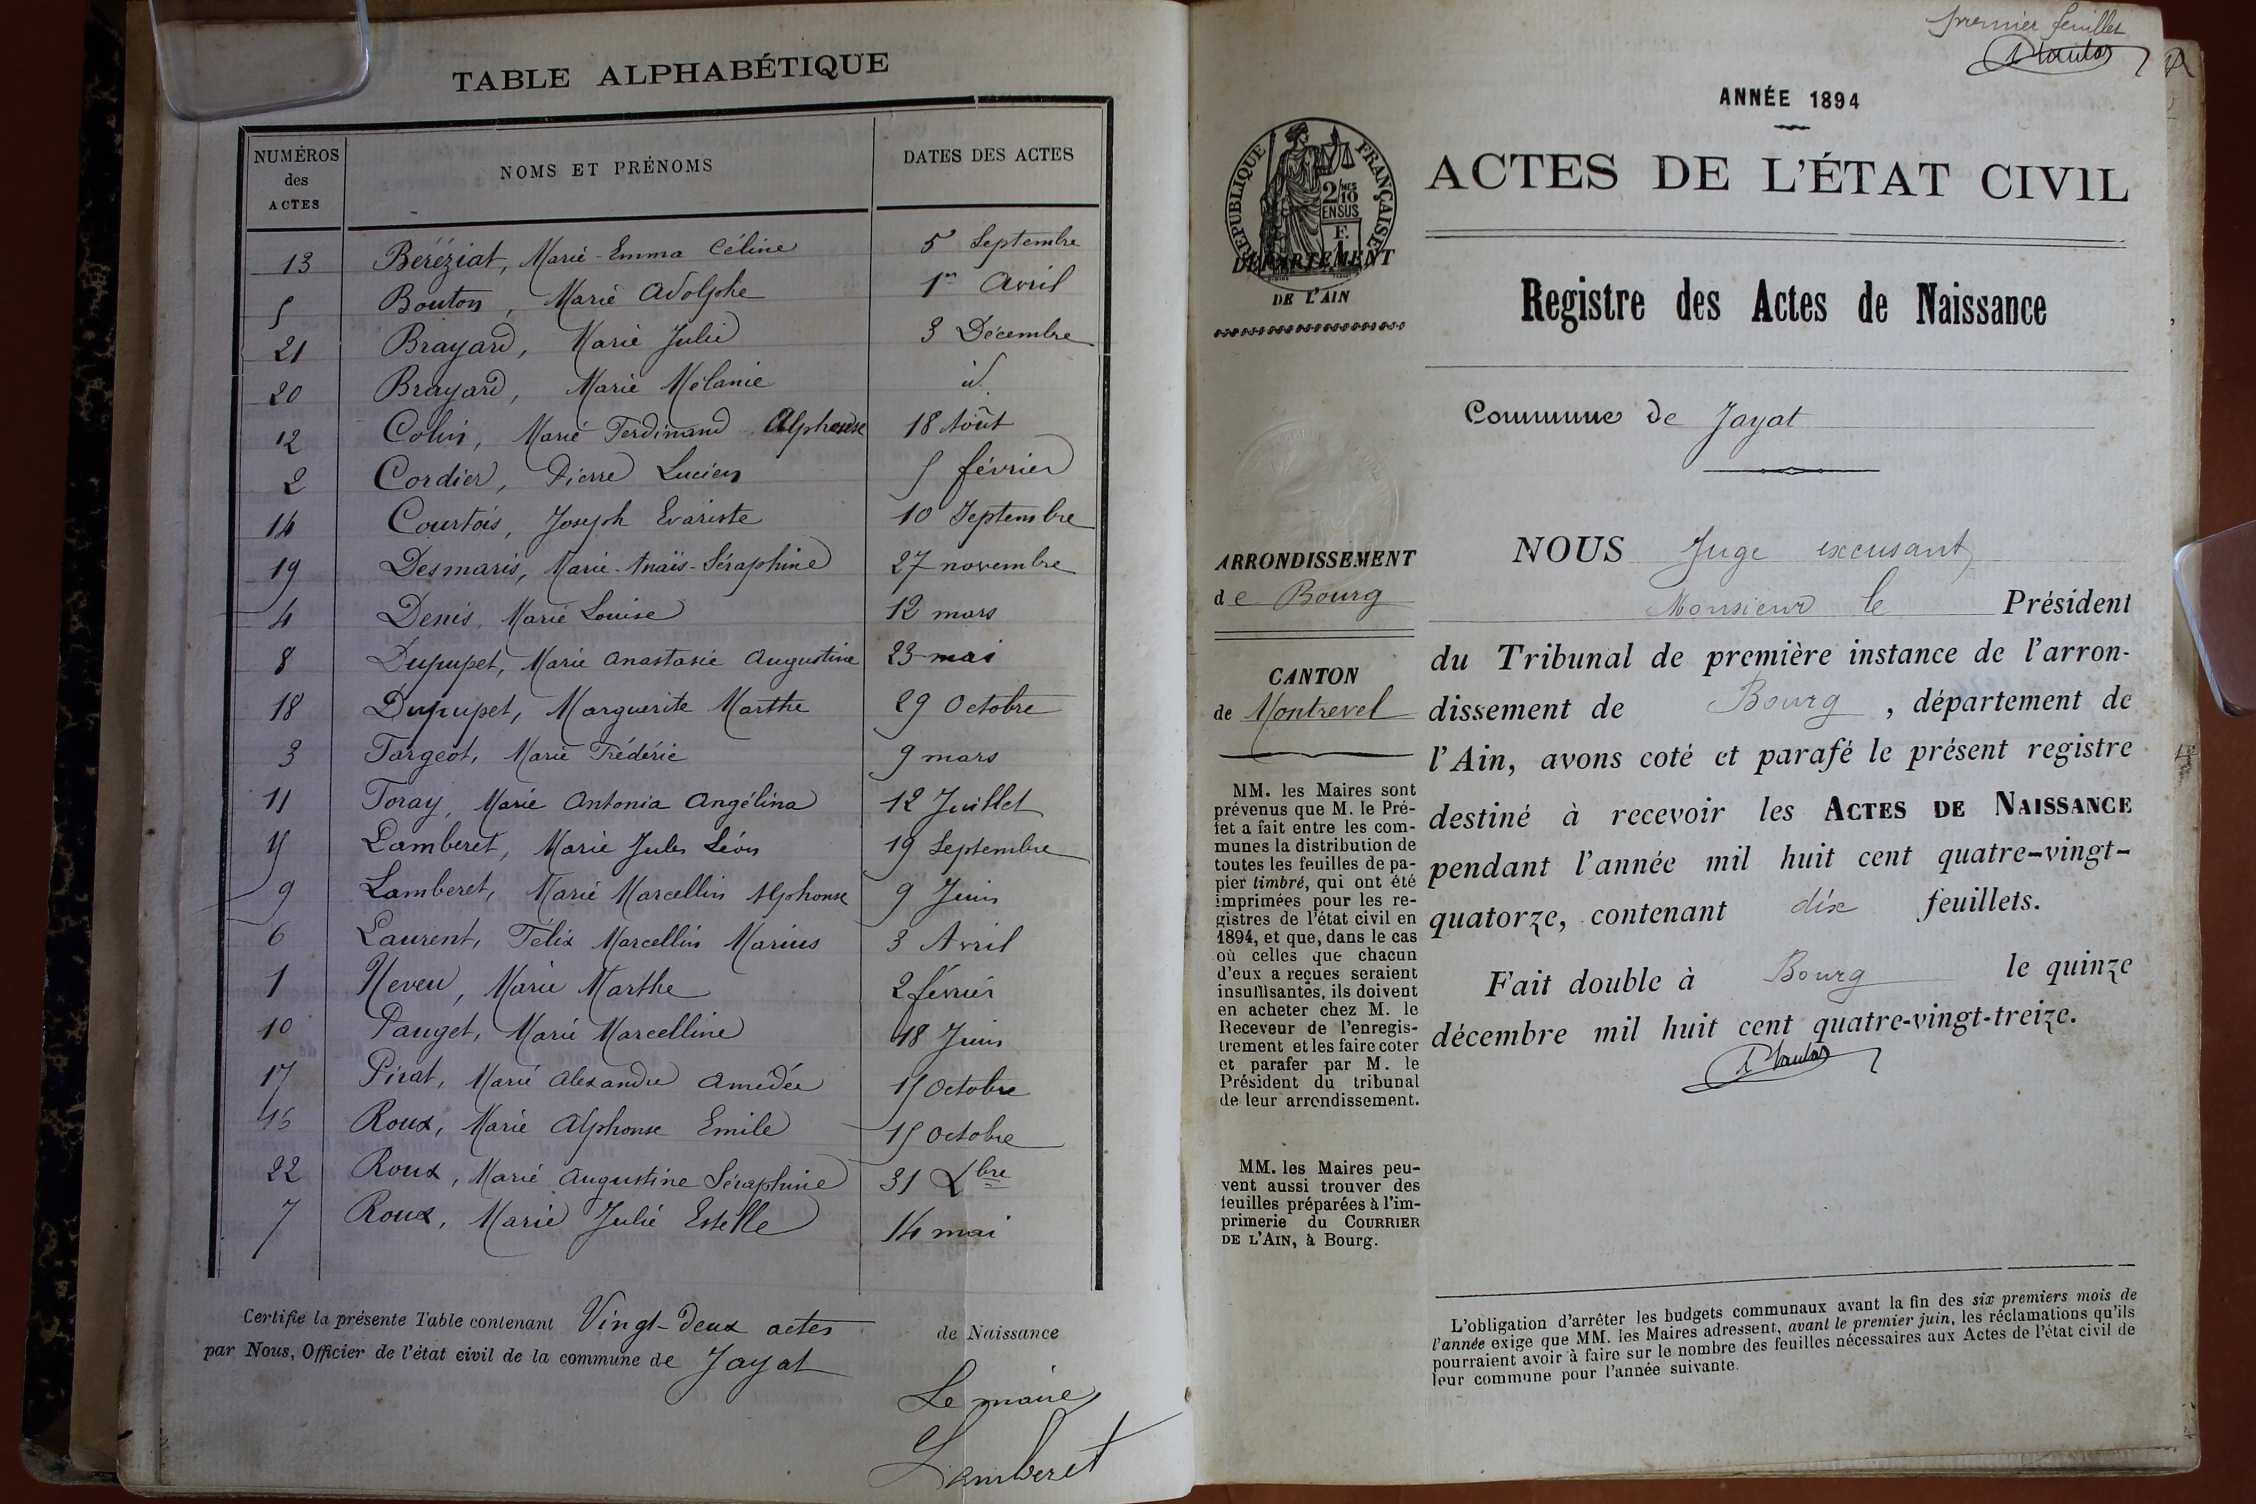 TABLE ALPHABÉTIQUE
NUMÉROS des ACTES NOMS ET PRÉNOMS DATES DES ACTES
13 Béréziat, Marie-Emma Céline 5 Septembre
5 Bouton, Marie Adolphe 1er Avril
21 Brayard, Marie Julie 3 Décembre
20 Brayard, Marie Mélanie id.
12 Colin, Marie Ferdinand Alphonse 18 Août
2 Cordier, Pierre Lucien 5 février
14 Courtois, Joseph Evariste 10 Septembre
19 Desmaris, Marie-Anaïs-Séraphine 27 novembre
4 Denis, Marie Louise 12 mars
8 Dupupet, Marie Anastasie Augustine 23 mai
18 Dupupet, Marguerite Marthe 29 Octobre
3 Fargeot, Marie Frédéric 9 mars
11 Foray, Marie Antonia Angélina 12 Juillet
15 Lamberet, Marie Jules Léon 19 Septembre
9 Lamberet, Marie Marcellin Alphonse 9 Juin
6 Laurent, Félix Marcellin Marius 3 Avril
1 Neveu, Marie Marthe 2 février
10 Pauget, Marie Marcelline 18 Juin
17 Pirat, Marie Alexandre Amédée 15 Octobre
Roux, Marie Alphonse Emile 15 Octobre
22 Roux, Marie Augustine Séraphine 31 Xbre
7 Roux, Marie Julie Estelle 14 mai
Certifie la présente Table contenant Vingt-deux actes de Naissance
par Nous, Officier de l'état civil de la commune de Jayat
Le maire
Lamberet
premier feuillet
ANNÉE 1894
RÉPUBLIQUE FRANÇAISE
2/10mes
EN SUS
F.
1
DÉPARTEMENT
DE L'AIN
ACTES DE L'ÉTAT CIVIL
Registre des Actes de Naissance
Commune de Jayat
ARRONDISSEMENT
de Bourg
CANTON
de Montrevel
MM. les Maires sont
prévenus que M. le Pré-
fet a fait entre les com-
munes la distribution de
toutes les feuilles de pa-
pier timbré, qui ont été
imprimées pour les re-
gistres de l'état civil en
1894, et que, dans le cas
où celles que chacun
d'eux a reçues seraient
insuffisantes, ils doivent
en acheter chez M. le
Receveur de l'enregis-
trement et les faire coter
et parafer par M. le
Président du tribunal
de leur arrondissement.
MM. les Maires peu-
vent aussi trouver des
feuilles préparées à l'im-
primerie du COURRIER
DE L'AIN, à Bourg.
NOUS Juge excusant
Monsieur le Président
du Tribunal de première instance de l'arron-
dissement de Bourg, département de
l'Ain, avons coté et parafé le présent registre
destiné à recevoir les ACTES DE NAISSANCE
pendant l'année mil huit cent quatre-vingt-
quatorze, contenant dix feuillets.
Fait double à Bourg le quinze
décembre mil huit cent quatre-vingt-treize.
L'obligation d'arrêter les budgets communaux avant la fin des six premiers mois de
l'année exige que MM. les Maires adressent, avant le premier juin, les réclamations qu'ils
pourraient avoir à faire sur le nombre des feuilles nécessaires aux Actes de l'état civil de
leur commune pour l'année suivante.